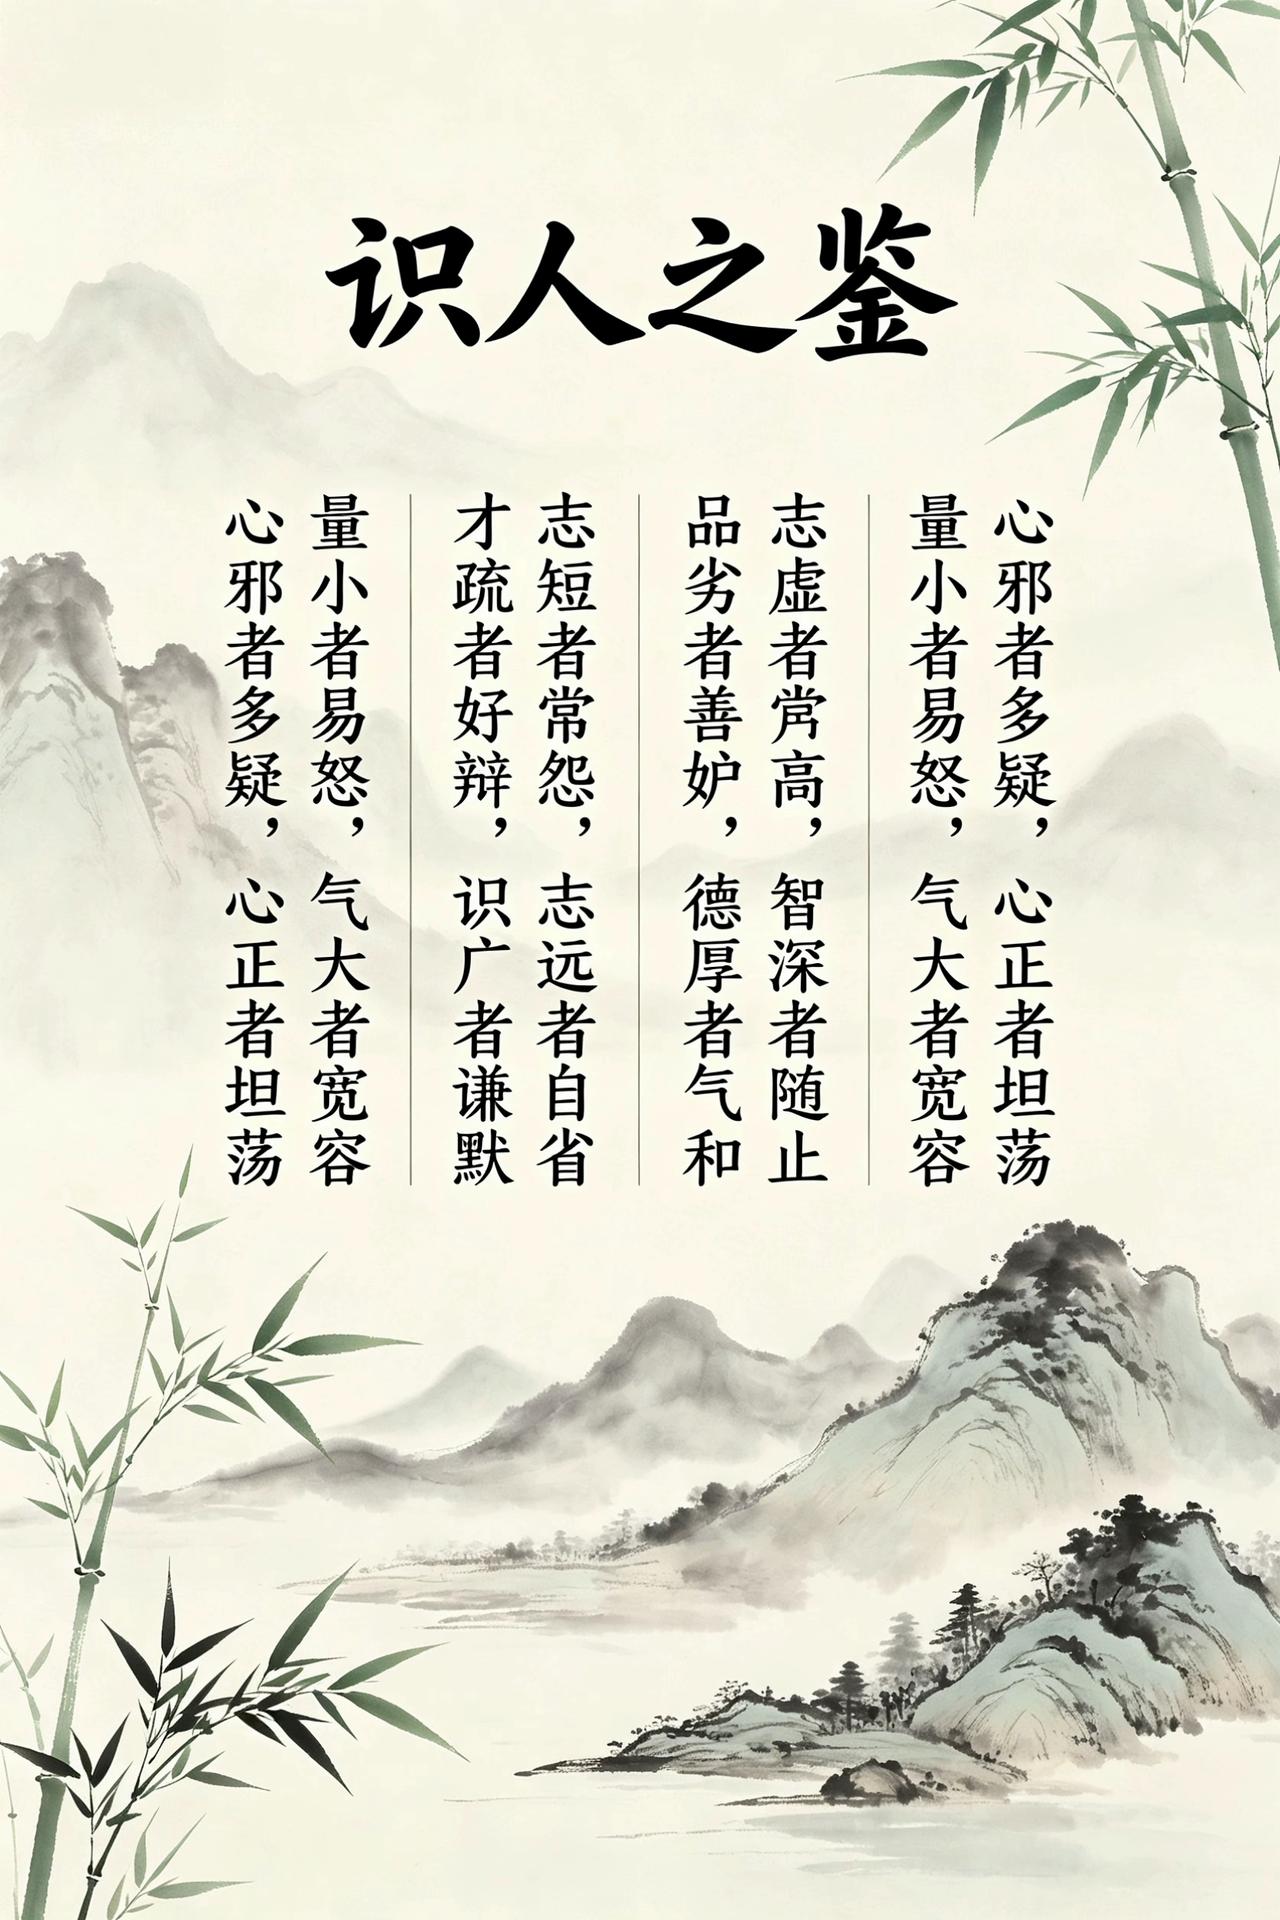 识人之鉴
心邪者多疑，心正者坦荡
量小者易怒，气大者宽容
志虚者常高，智深者随止
品劣者善妒，德厚者气和
志短者常怨，志远者自省
才疏者好辩，识广者谦默
量小者易怒，气大者宽容
心邪者多疑，心正者坦荡